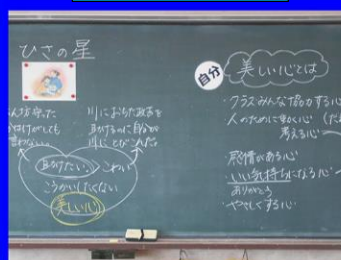 ひさの星
川におちた政吉を
助けるのに自分が
川にとびこんだ
助けたい こわい
こうかいしたくない
美しい心
自分
美しい心とは
・クラスみんな協力する心
人のために
考える心
感情がある心
いい気持ちになる心
ありがとう
・やさしくする心